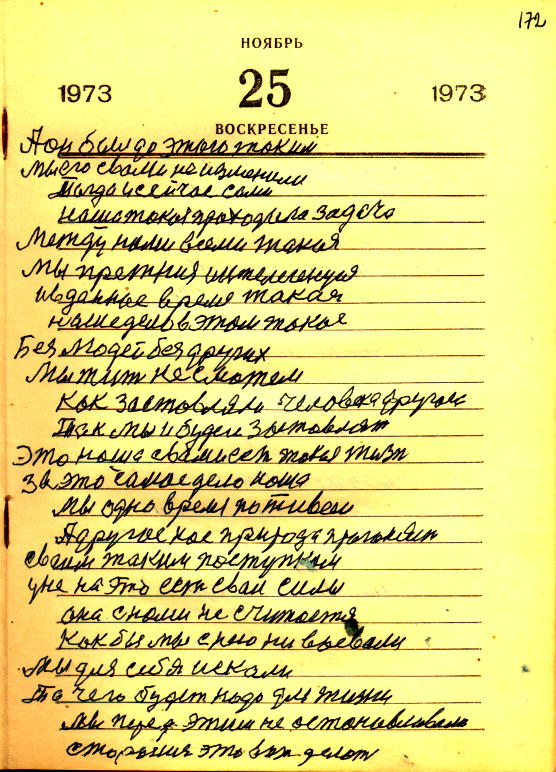 172
НОЯБРЬ
1973 25 1973
ВОСКРЕСЕНЬЕ
А он был до этого таким
Мы его свами не изменили
Тогда и сейчас сами
наша такая проходила задача
Между нами всеми такая
Мы прежния интелегенция
и в данное время такая
наше дело в этом такое
Без людей без других
Мы жит не сможем
Как заставляли человека другого
Так мы и будем заставлят
Это наша свами ест такая жизн
За это самое дело наша
Мы одно время поживем
А другое нас природа прогоняит
своим таким поступком
у не на это ест сваи силы
она снами не считается
Как бы мыснею ни воевали
Мы для себя искали
Та чего будет надо для жизни
Мы перед этим не останавливали
старания это вам делат